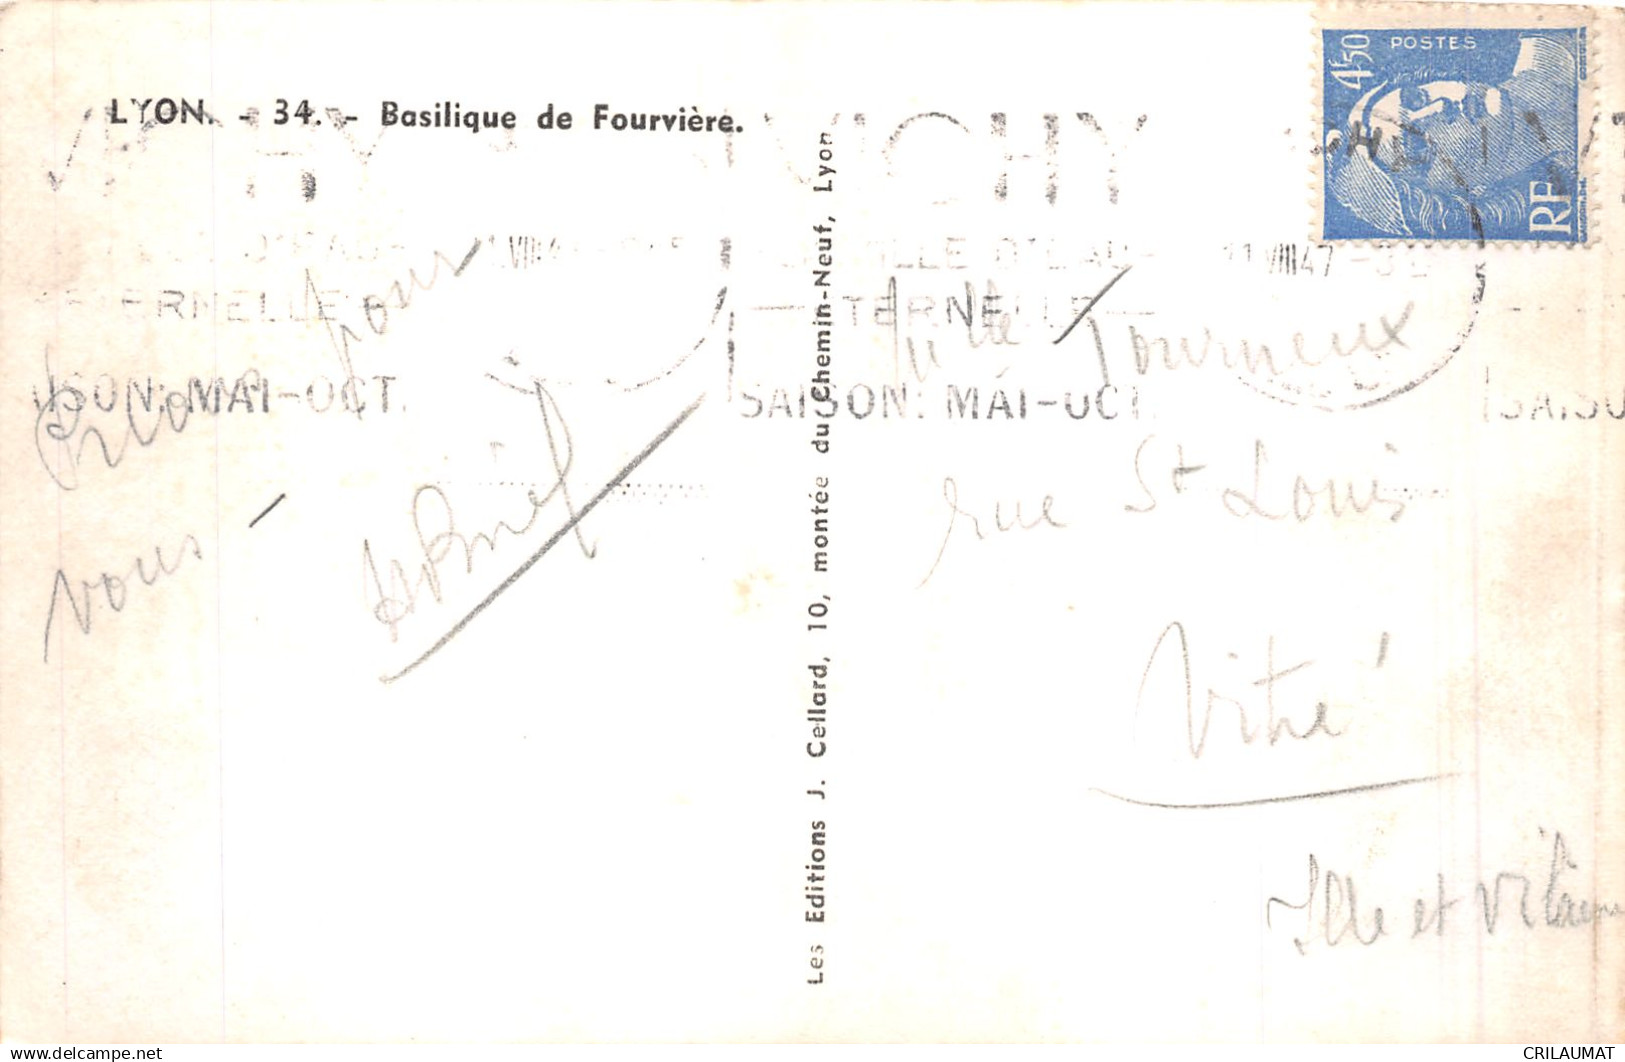 LYON. - 34. - Basilique de Fourvière.
4F50
POSTES
RF
VICHY
VILLE D'EAU
ETERNELLE
SAISON: MAI-OCT.
11 VIII 47
pour
vous
Les Editions J. Cellard, 10, montée du Chemin-Neuf, Lyon
Mlle Tourneux
rue St Louis
Vitré
Ille et Vilaine
www.delcampe.net
CRILAUMAT